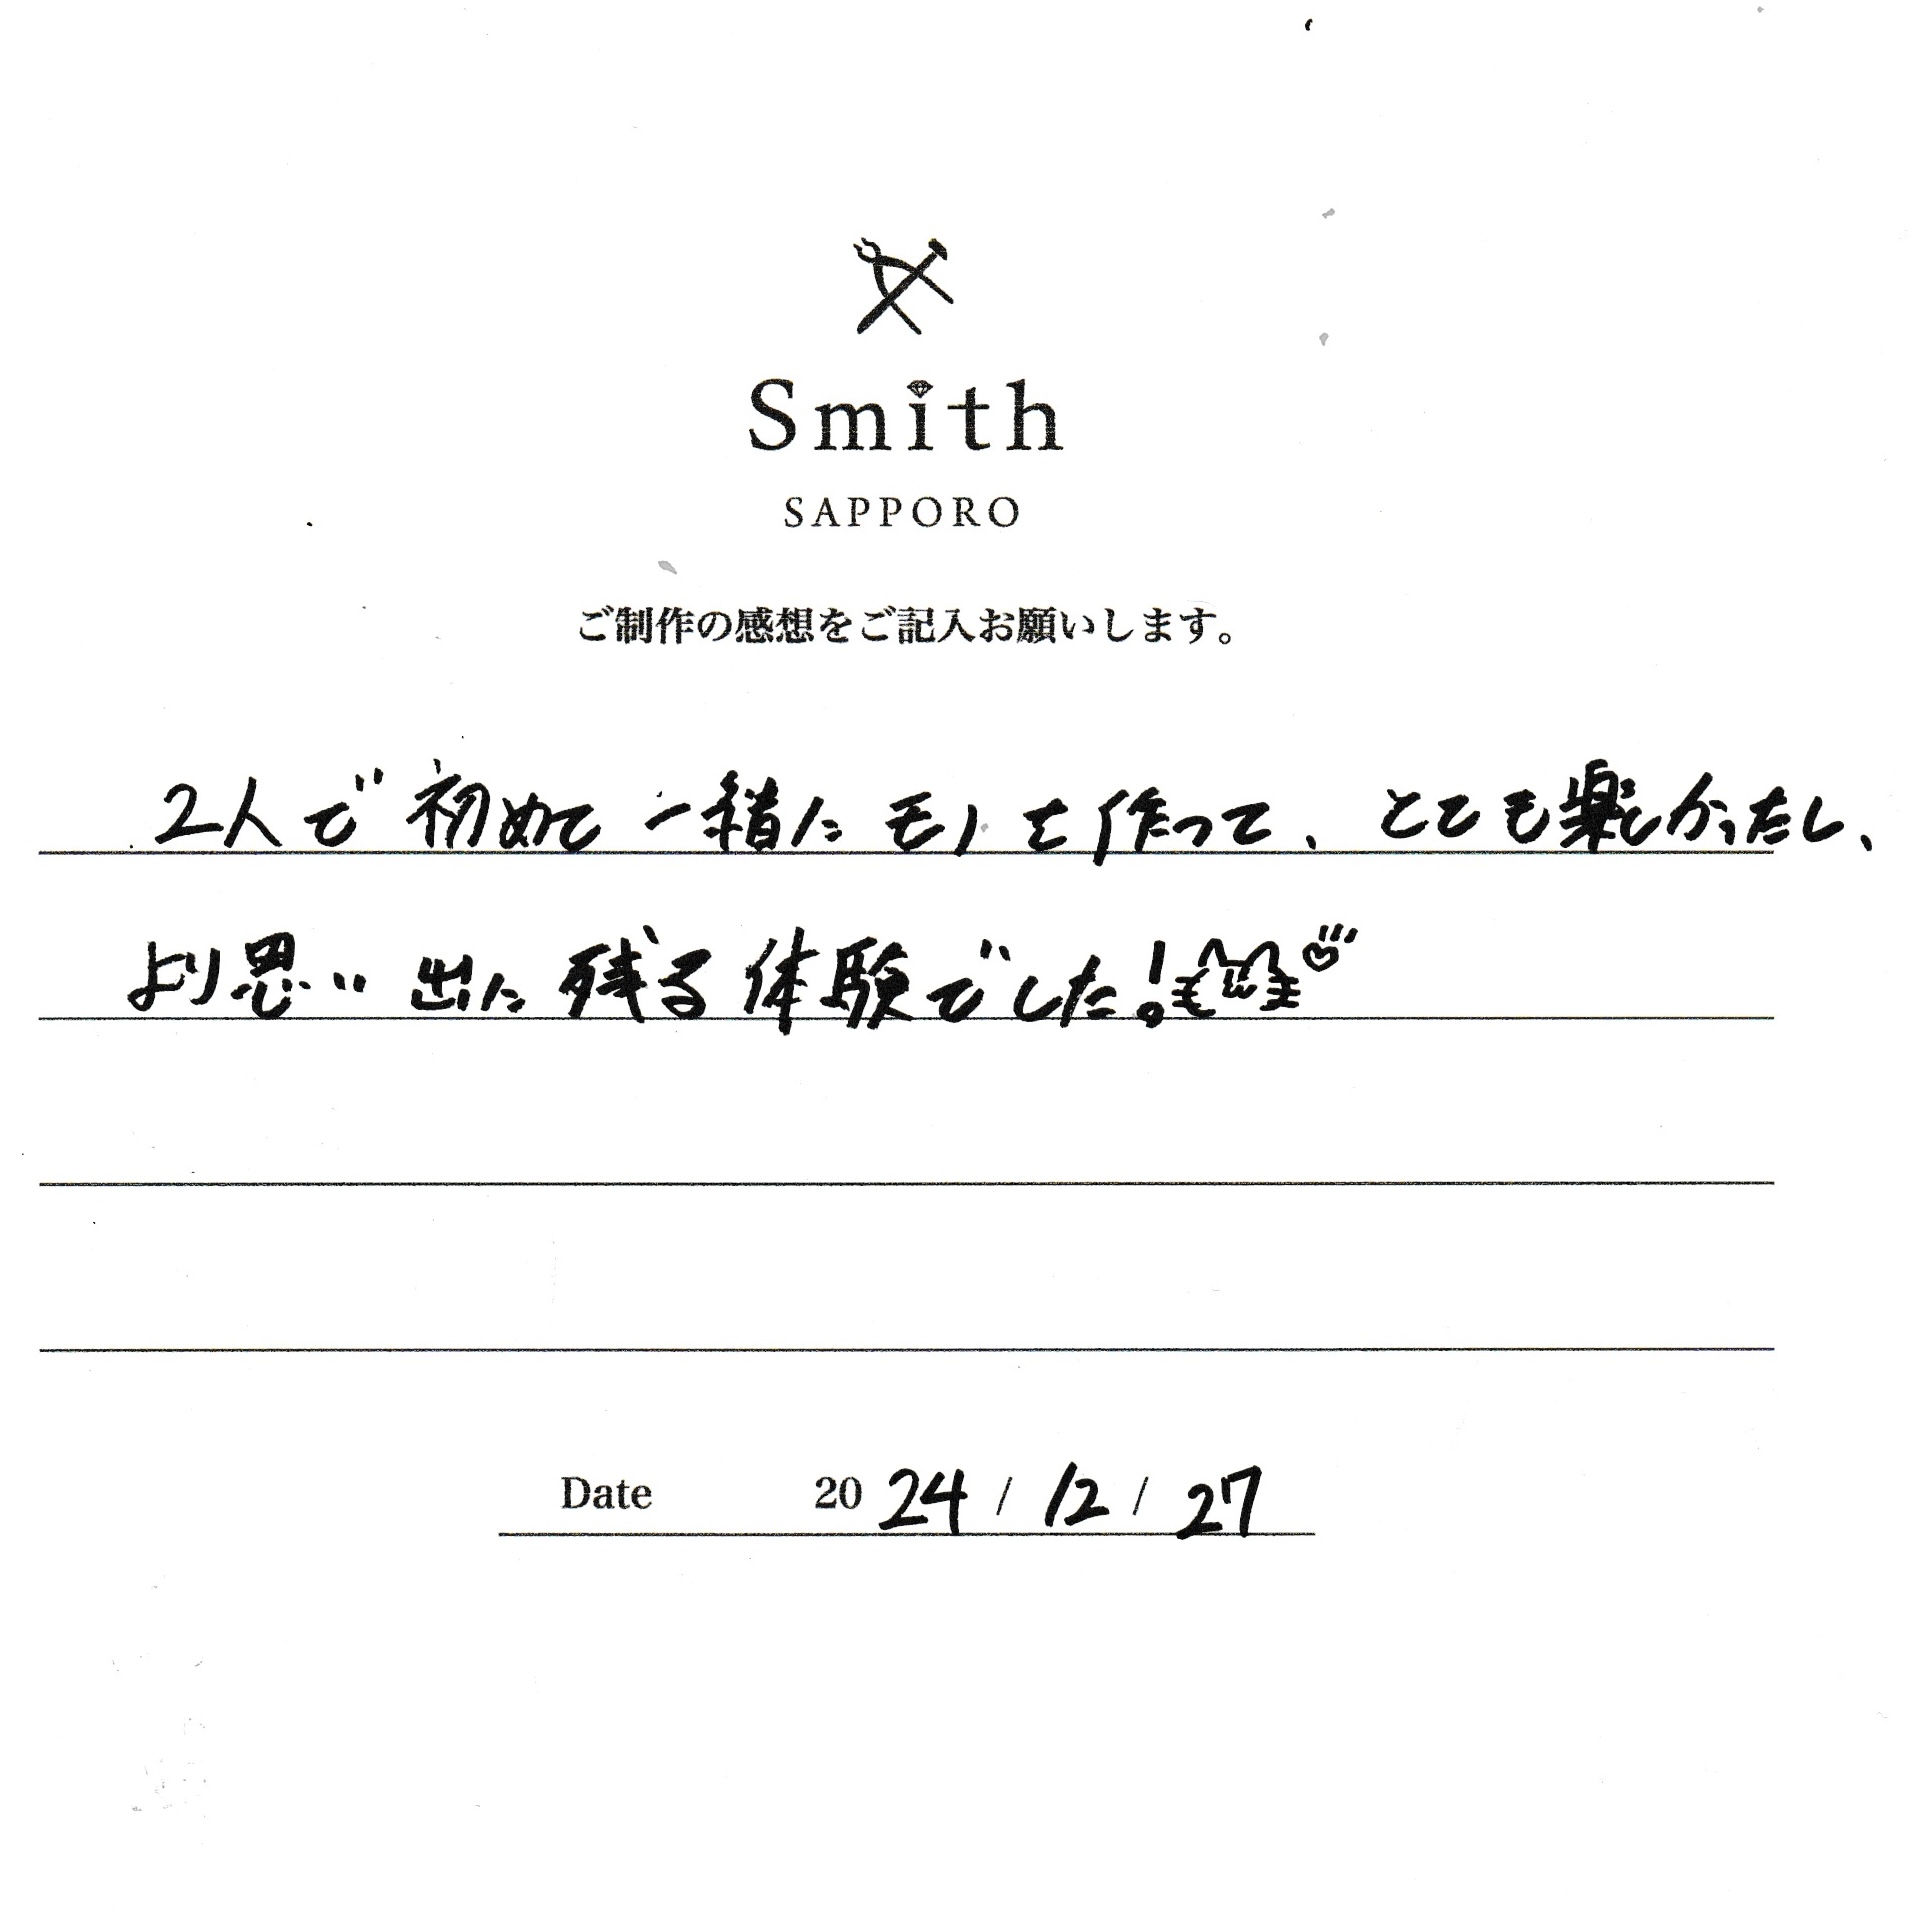 Smith
SAPPORO
ご制作の感想をご記入お願いします。
2人で初めて一緒にモノを作って、とても楽しかったし、
より思い出に残る体験でした!
Date 2024 / 12 / 27